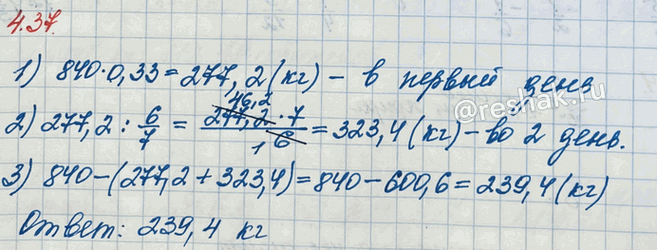 4.37.
1) 840·0,33=277,2(кг) – в первый день
@reshak.ru
2) 277,2 : 6/7 = (277,2 46,2 · 7)/(6 1) = 323,4(кг) – во 2 день.
3) 840–(277,2+323,4)=840–600,6=239,4(кг)
Ответ: 239,4 кг